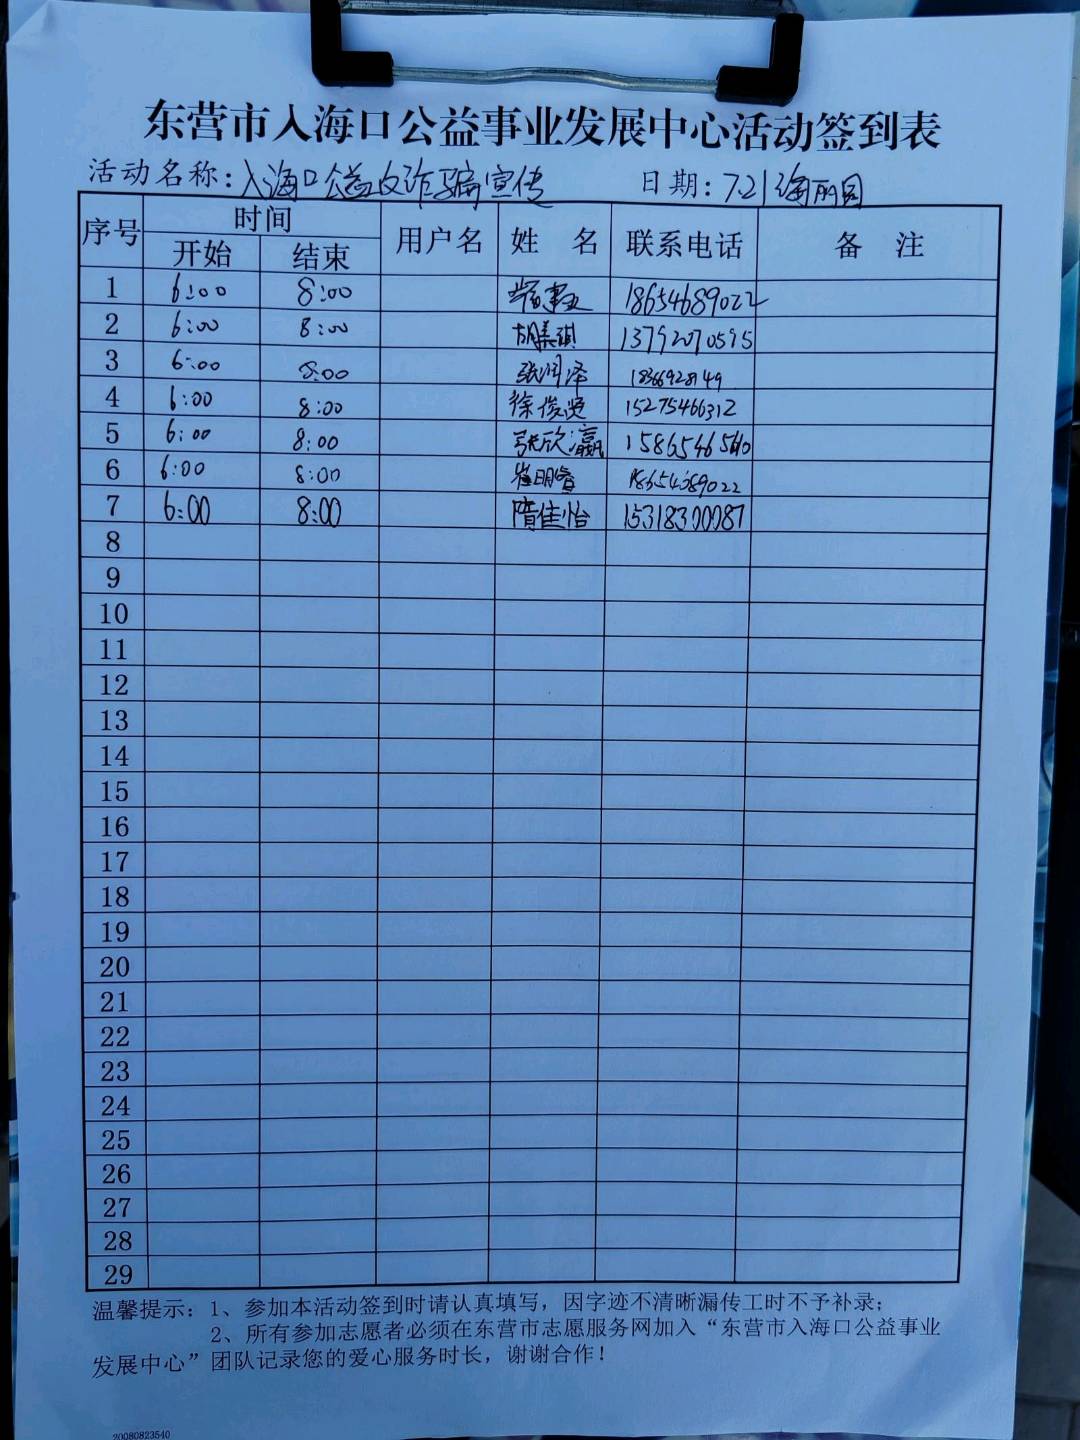 东营市入海口公益事业发展中心活动签到表
活动名称：入海口公益反诈骗宣传 日期：7.21 海丽园
序号 时间 用户名 姓 名 联系电话 备 注
开始 结束
1 6:00 8:00 18654689022
2 6:00 8:00 胡美琪 13792070595
3 6:00 8:00 张润泽 18366928149
4 6:00 8:00 徐俊贤 15275466312
5 6:00 8:00 张欣瀛
6 6:00 8:00 崔明睿
7 6:00 8:00 隋佳怡 15318300087
8
9
10
11
12
13
14
15
16
17
18
19
20
21
22
23
24
25
26
27
28
29
温馨提示：1、参加本活动签到时请认真填写，因字迹不清晰漏传工时不予补录；
2、所有参加志愿者必须在东营市志愿服务网加入“东营市入海口公益事业
发展中心”团队记录您的爱心服务时长，谢谢合作！
20080823540